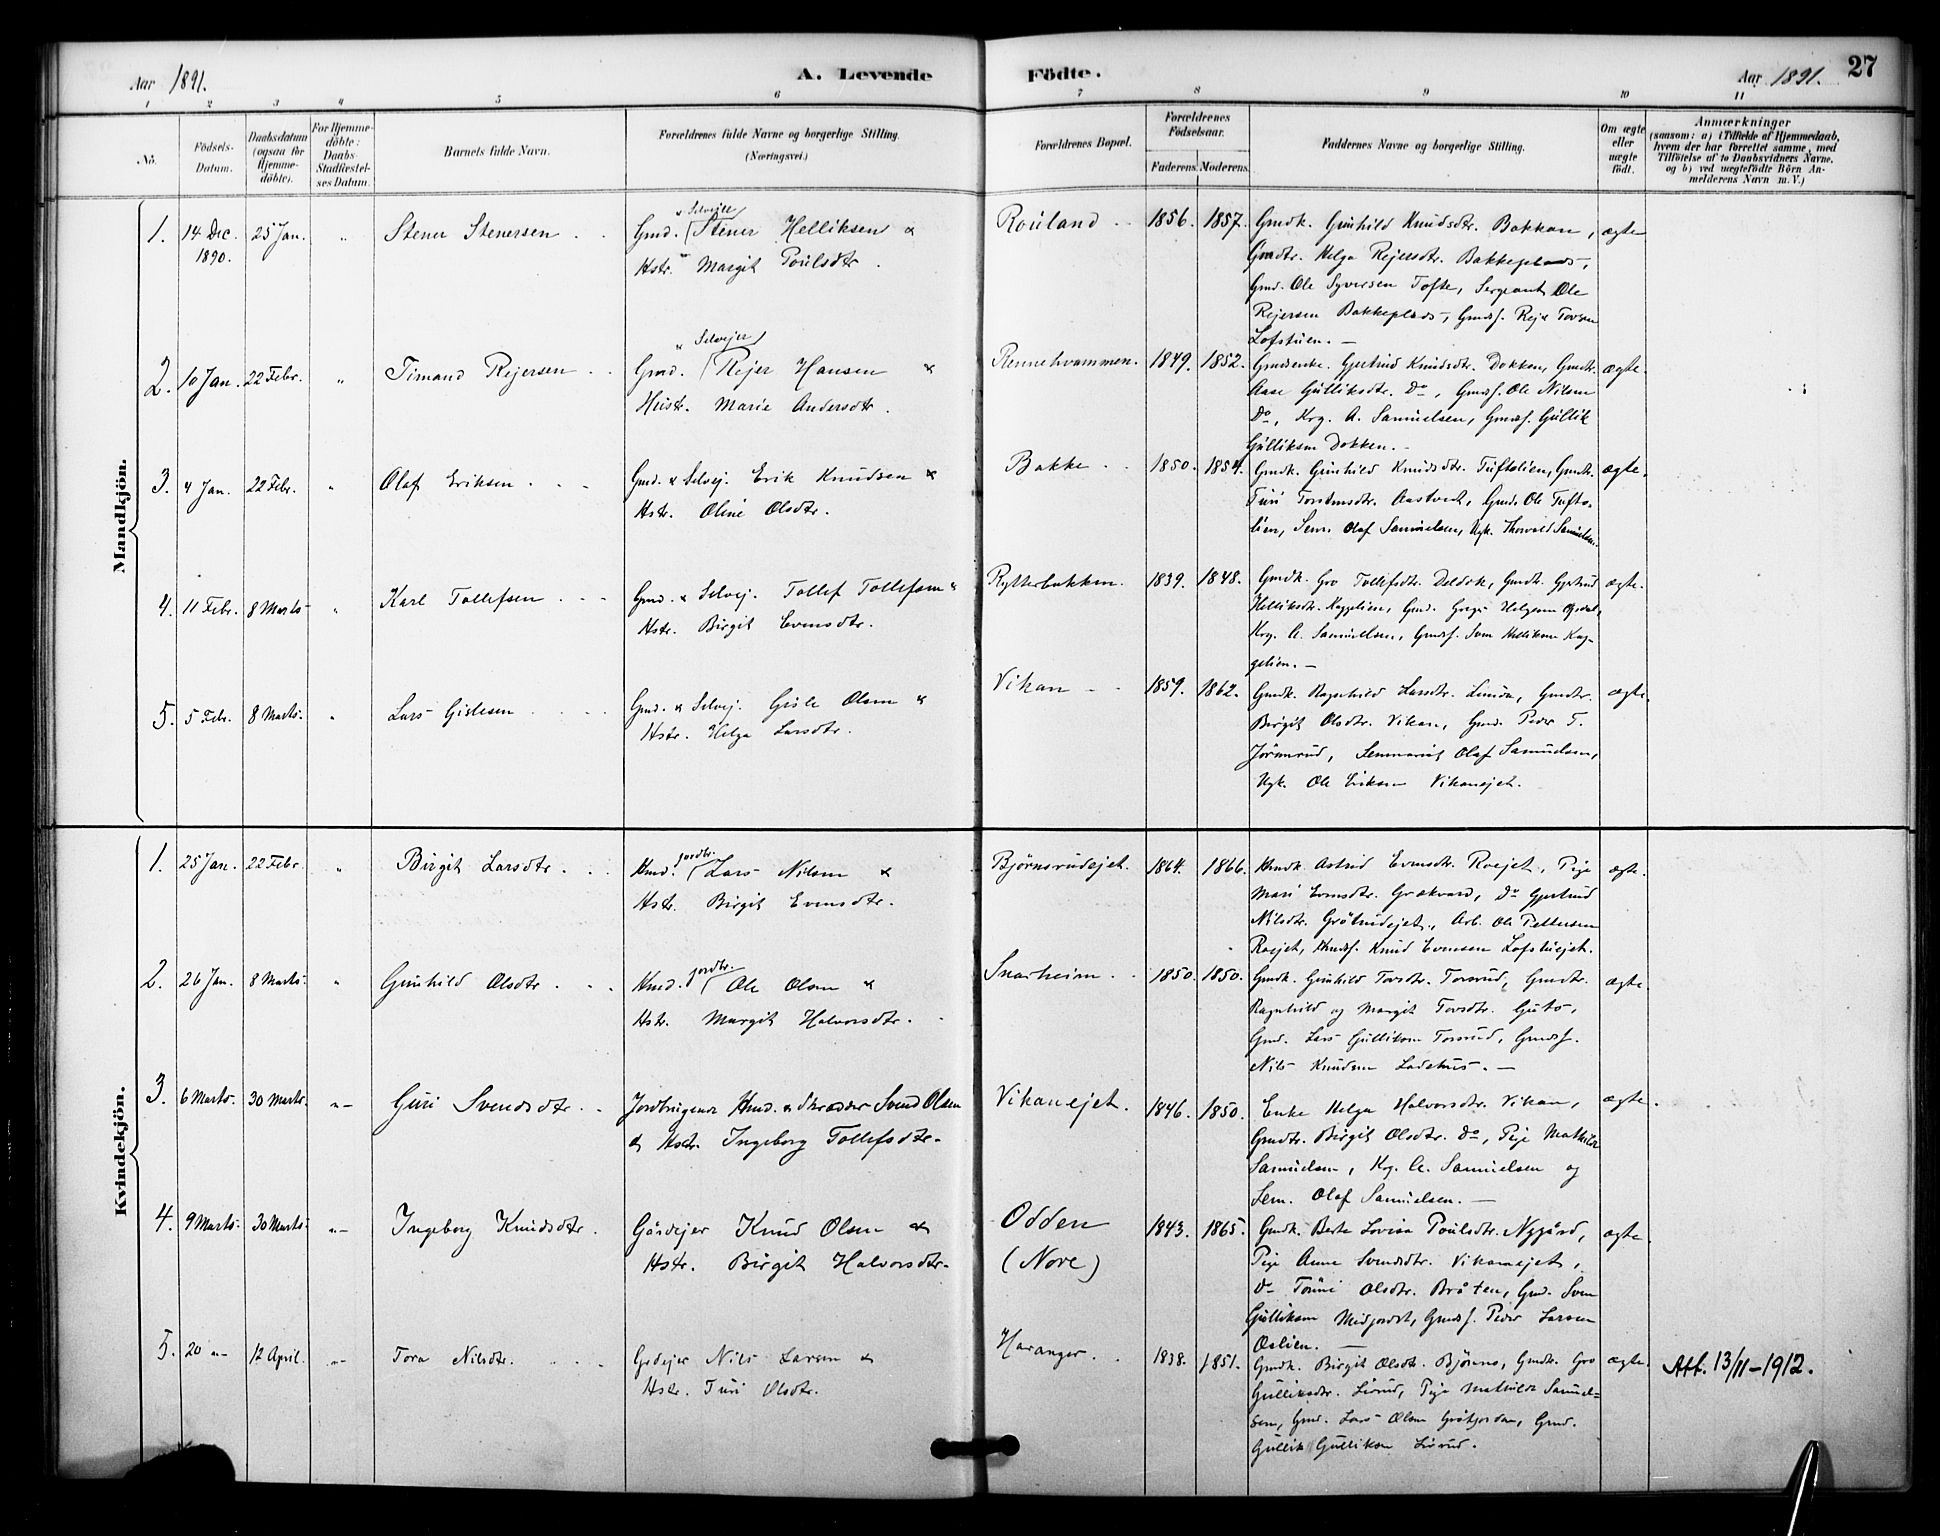 Aar 1891.
A. Levende Födte.
Aar 1891.
27
1 2 3 4 5 6 7 8 9 10 11
No.
Födsels-
Datum.
Daabsdatum
(ogsaa for
Hjemme-
döbte).
For Hjemme-
döbte:
Daabs-
Stadfæstel-
ses Datum.
Barnets fulde Navn.
Forældrenes fulde Navne og borgerlige Stilling.
(Næringsvei.)
Forældrenes Bopæl.
Forældrenes
Födselsaar.
Faderens. Moderens.
Faddernes Navne og borgerlige Stilling.
Om ægte
eller
uægte
födt.
Anmærkninger
(saasom: a) i Tilfælde af Hjemmedaab,
hvem der har forrettet samme, med
Tilföielse af to Daabsvidners Navne,
og b) ved uægtefödte Börn An-
melderens Navn m. V.)
Mandkjön.
1. 14 Dec. 1890. 25 Jan. " Stener Stenersen
Gmd. & Selvejer Stener Helliksen &
Hstr. Margit Poulsdtr.
Rouland 1856. 1857.
Gmdk. Gunhild Knudsdtr. Bakkan,
Gmdtr. Helga Rejersdtr. Bakkeplads,
Gmd. Ole Syversen Tofte, Sergeant Ole
Rejersen Bakkeplads, Gmds. Rejer Torsen
Lofstuen. —
ægte
2. 10 Jan. 22 Febr. " Timand Rejersen
Gmd. & Selvejer Rejer Hansen &
Hustr. Marie Andersdtr.
Rennehvammen. 1849. 1852.
Gmdenke. Gjertrud Knudsdtr. Dokken, Gmdtr.
Aase Gulliksdtr. Do, Gmds. Ole Nilsen
Do, Krg. A. Samuelsen, Gmds. Gullik
Gulliksen Dokken. —
ægte
3. 4 Jan. 22 Febr. " Olaf Eriksen
Gmd. & Selvej. Erik Knudsen &
Hstr. Oline Olsdtr.
Bakke 1850. 1854.
Gmdk. Gunhild Knudsdtr. Tuftolien, Gmdtr.
Turi Torstensdtr. Aastvedt, Gmd. Ole Tufto-
lien, Sem. Olaf Samuelsen, Ugk. Thorvald Samuelsen.
ægte.
4. 11 Febr. 8 Marts " Karl Tollefsen
Gmd. & Selvej. Tollef Tollefsen &
Hstr. Birgit Evensdtr.
Rytterbakken. 1839. 1848.
Gmdk. Gro Tollefsdtr. Daldok, Gmdk. Gjertrud
Helliksdtr. Kaggelien, Gmd. Helgesen
Krg. A. Samuelsen, Gmds. Sven Helliksen Kag-
gelien. —
ægte.
5. 5 Febr. 8 Marts. " Lars Gislesen
Gmd. & Selvej. Gisle Olsen &
Hstr. Helga Larsdtr.
Vikan 1859. 1862.
Gmdk. Ragnhild Larsdtr. Gmdtr.
Birgit Olsdtr. Vikan, Gmd. Peder T.
Jørnmrud, Seminarist Olaf Samuelsen,
Ugk. Ole Eriksen Vikanejet.
ægte.
Kvindekjön.
1. 25 Jan. 22 Febr. " Birgit Larsdtr.
Hmd. jordbr. Lars Nilsen &
Hstr. Birgit Evensdtr.
Bjørnsrudejet. 1864. 1866.
Hmdk. Astrid Evensdtr. Roejet, Pige
Mari Evensdtr. Grøkvard, Do Gjertrud
Nilsdtr. Grötrudejet, Arb. Ole Pettersen
Roejet, Hmds. Knud Evensen Lofstuejet.
ægte.
2. 26 Jan. 8 Marts. " Gunhild Olsdtr.
Hmd. jordbr. Ole Olsen &
Hstr. Margit Halvorsdtr.
Snarheim 1850. 1850.
Gmdk. Gunhild Torsdtr. Torsrud, Gmdtr.
Ragnhild og Margit Torsdtr. Guto,
Gmd. Lars Gulliksen Torsrud, Gmds.
Nils Knudsen Ladehus. —
ægte.
3. 6 Marts. 30 Marts. " — Guri Svendsdtr.
Jordbrugende Hmd. & Skrædder Svend Olsen
& Hstr. Ingeborg Tollefsdtr.
Vikanejet. 1846. 1850.
Enke Helga Halvorsdtr. Vikan,
Gmdtr. Birgit Olsdtr. Do, Pige Mathilde
Samuelsen, Krg. A. Samuelsen og
Sem. Olaf Samuelsen. —
ægte.
4. 9 Marts. 30 Marts. " — Ingeborg Knudsdtr.
Gårdejer Knud Olsen &
Hstr. Birgit Halvorsdtr.
Odden
(Nore)
1843. 1865.
Gmdk. Berte Lovisa Poulsdtr. Nygård,
Pige Anne Svendsdtr. Vikanejet,
Do Tone Olsdtr. Bråten, Gmd. Sven
Gulliksen Medjordet, Gmds. Peder Larsen
Oslien. —
ægte.
5. 20 " — 12 April. " — Tora Nilsdtr.
Grdejer Nils Larsen &
Hstr. Turi Olsdtr.
Haranger. 1838. 1851.
Gmdk. Birgit Olsdtr. Bjönno, Gmdtr. Gro
Gulliksdtr. Lirud, Pige Mathilde Samuel-
sen, Gmd. Lars Olsen Gröfjordan, Gmd.
Gullik Gulliksen Lirud.
ægte.
Att. 13/11-1912.